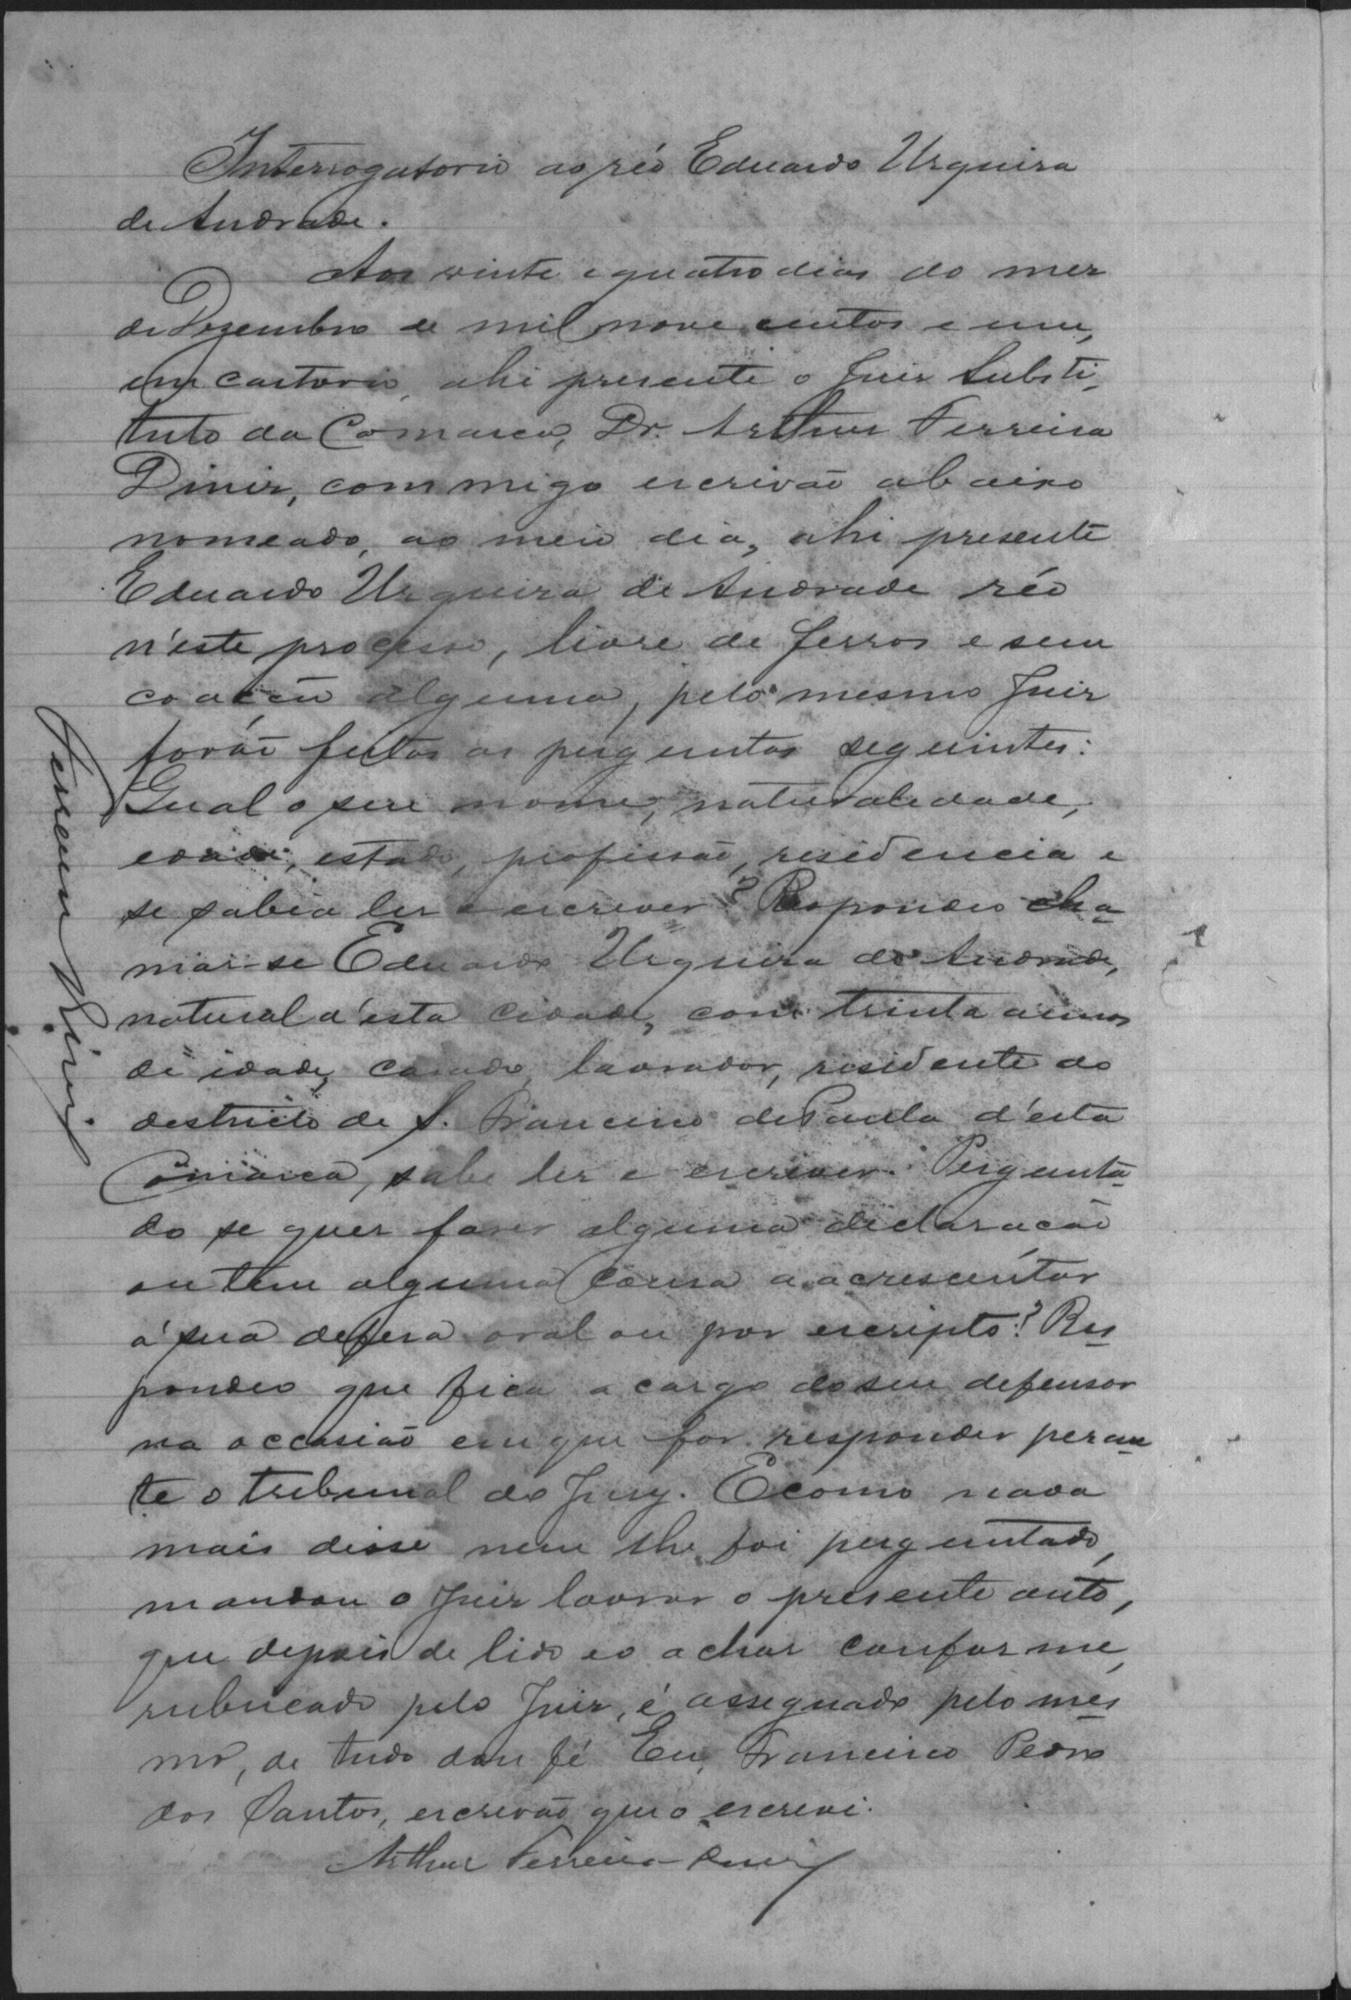 Interrogatorio ao réo Eduardo Urquiza
de Andrade.
Aos vinte e quatro dias do mez
de Dezembro de mil nove centos e um,
em cartorio, ahi presente o Juiz Substi-
tuto da Comarca, Dr. Arthur Ferreira
Diniz, commigo escrivão abaixo
nomeado, ao meio dia, ahi presente
Eduardo Urquiza de Andrade réo
n'este processo, livre de ferros e sem
coacção alguma, pelo mesmo Juiz
forão feitas as perguntas seguintes:
Qual o seu nome, naturalidade,
edade, estado, profissão, residencia e
se sabia ler e escrever? Respondeo cha-
mar-se Eduardo Urquiza de Andrade,
natural d'esta cidade, com trinta annos
de idade, casado, lavrador, residente do
destricto de S. Francisco de Paula d'esta
Comarca, sabe ler e escrever. Pergunta-
do se quer fazer alguma declaracão
ou tem alguma cousa a acrescentar
á sua defesa oral ou por escripto? Res-
pondeo que fica a cargo do seu defensor
na occasião em que for responder peran-
te o tribunal do Jury. E como nada
mais disse nem lhe foi perguntado,
mandou o Juiz lavrar o presente auto,
que depois de lido e o achar conforme,
rubricado pelo Juiz, é assegnado pelo mes-
mo, de tudo dou fé. Eu, Francisco Pedro
dos Santos, escrivão que o escrevi.
Arthur Ferreira Diniz
Ferreira Diniz